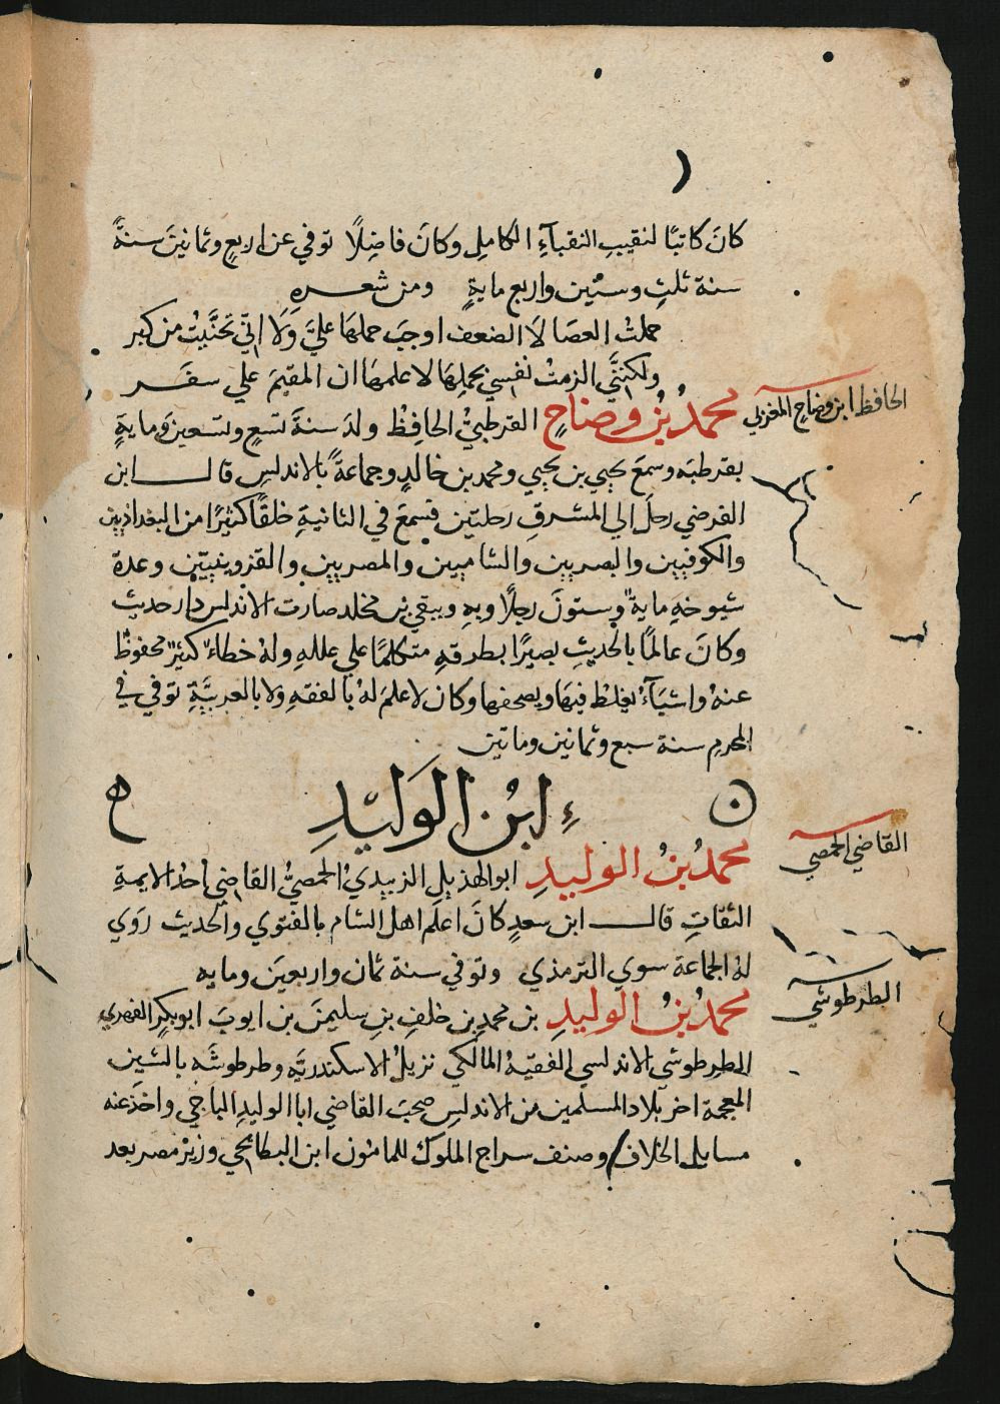 كانَ كاتبًا لنقيبِ النقبآءِ الكاملِ وكانَ فاضِلًا توفي عن اربعٍ وثمانينَ سنةً
سنة ثلثٍ وستين واربع مايةٍ ومن شعرهِ
حملتُ العصَا لَا الضعف اوجبَ حملهَا عليَّ وَلَا اني تحنَّيتُ من كبر
ولكنَّني الزمتُ نفسي بحملِهَا لاعلمهَا ان المقيمَ علي سفر
الحافظ ابن وضاح المغربي
محمدُ بنُ وضاحٍ القرطبيُّ الحافِظُ ولدَ سنةَ تسعٍ وتسعينَ ومايةٍ
بقرطبَه وسمعَ يحيي بن يحيي ومحمد بن خالدٍ وجماعةً بالاندلسِ قال ابن
الفرضي رحلَ الي المشرقِ رحلتين فسمعَ في الثانيةِ خلقًا كثيرًا من البغداذيين
والكوفيين والبصريين والشاميين والمصريين والقزوينيين وعدة
شيوخهِ مايةٌ وستونَ رجلًا وبهِ وببقي بن مخلد صارت الاندلس دار حديثٍ
وكانَ عالمًا بالحديثِ بصيرًا بطرقهِ متكلمًا علي عللهِ ولهُ خطاءٌ كثيرٌ محفوظٌ
عنهُ واشيَآءُ يغلطُ فيهَا ويصحفها وكان لا علمَ لهُ بالفقهِ ولا بالعربيَّةِ توفي في
المحرمِ سنة سبع وثمانين ومايتين
ن ابنُ الوَليْدِ ه
القاضي الحمصي
محمدُ بنُ الوليدِ ابو الهذيلِ الزبيديُّ الحمصيُّ القاضي احدُ الايمةِ
الثقاتِ قال ابن سعدٍ كانَ اعلَم اهل الشام بالفتوي والحديث روَي
لهُ الجماعة سوي الترمذي وتوفي سنة ثمان واربعينَ ومايه
الطرطوشي
محمدُ بنُ الوليدِ بن محمدِ بن خلفِ بنِ سليمنَ بن ايوبَ ابو بكرٍ الفهري
الطرطوشي الاندلسي الفقيهُ المالكي نزيلُ الاسكندريَّه وطرطوشَه بالشين
المعجمة اخر بلاد المسلمين من الاندلسِ صحبَ القاضي ابا الوليدِ الباجي واخذَ عنه
مسايل الخلاف وصنف سراج الملوك للمامُون ابن البطايحي وزيرُ مصر بعد